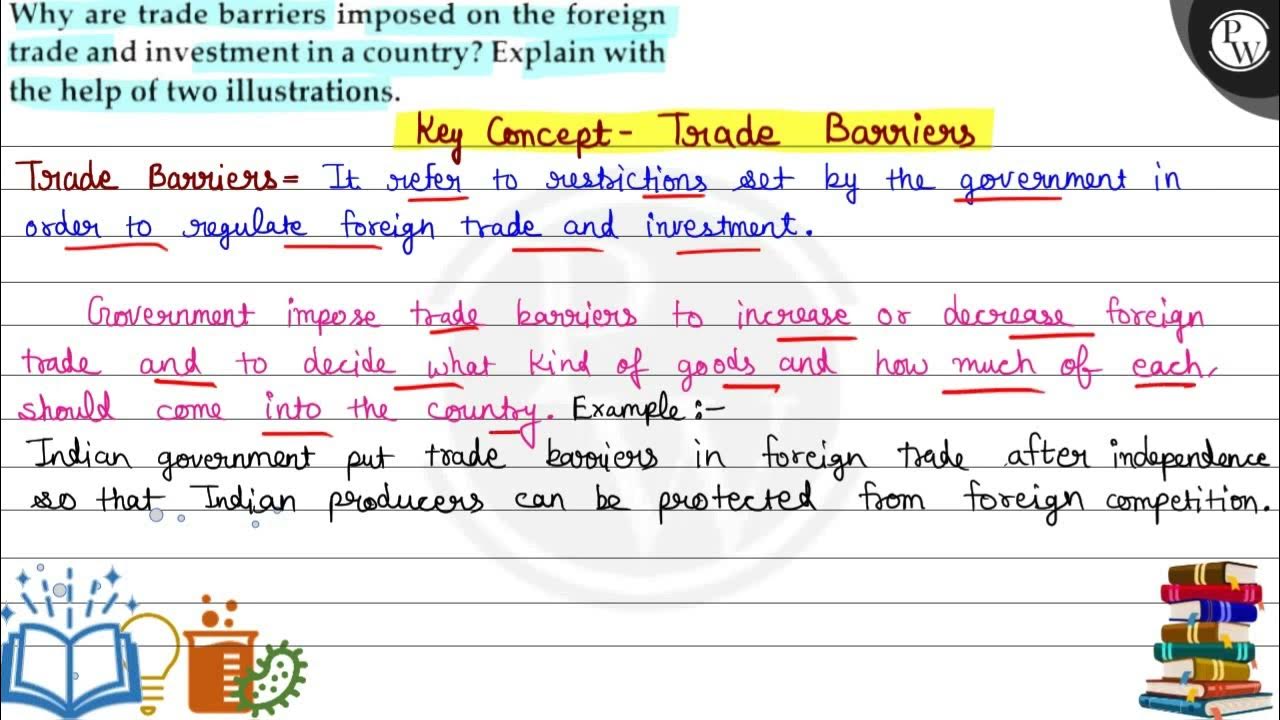 Why are trade barriers imposed on the foreign
trade and investment in a country? Explain with
the help of two illustrations.
PW
Key Concept- Trade Barriers
Trade Barriers= It refer to restrictions set by the government in
order to regulate foreign trade and investment.
Government impose trade barriers to increase or decrease foreign
trade and to decide what kind of goods and how much of each,
should come into the country. Example:-
Indian government put trade barriers in foreign trade after independence
so that Indian producers can be protected from foreign competition.